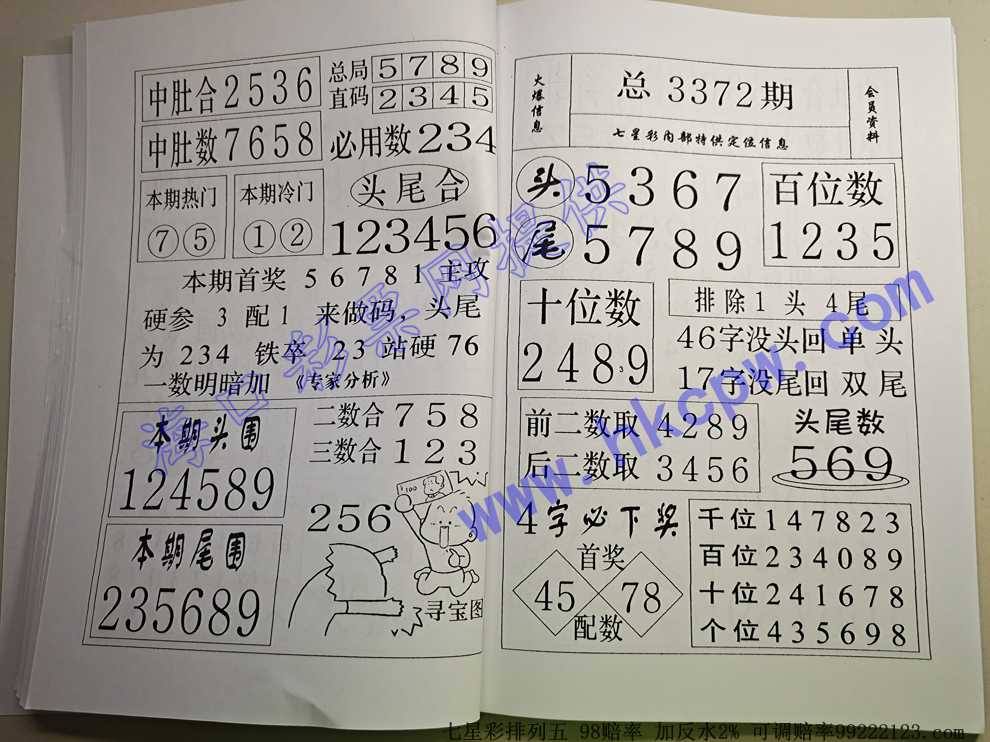 中肚合2536
总局5789
直码2345
中肚数7658
必用数234
本期热门
⑦⑤
本期冷门
①②
头尾合
123456
本期首奖56781主攻
硬参 3 配1 来做码，头尾
为 234 铁卒 23站硬76
一数明暗加 《专家分析》
本期头围
124589
二数合758
三数合123
本期尾围
235689
256
100
寻宝图
火爆信息
总 3372期
七星彩内部特供定位信息
会员资料
头5367
尾5789
百位数
1235
十位数
2489
3
排除1头4尾
46字没头回单头
17字没尾回双尾
前二数取4289
后二数取3456
头尾数
569
4字必下奖
首奖
45 78
配数
千位147823
百位234089
十位241678
个位435698
海口彩票网提供
www.hkcpw.com
七星彩排列五 98赔率 加反水2% 可调赔率99222123.com